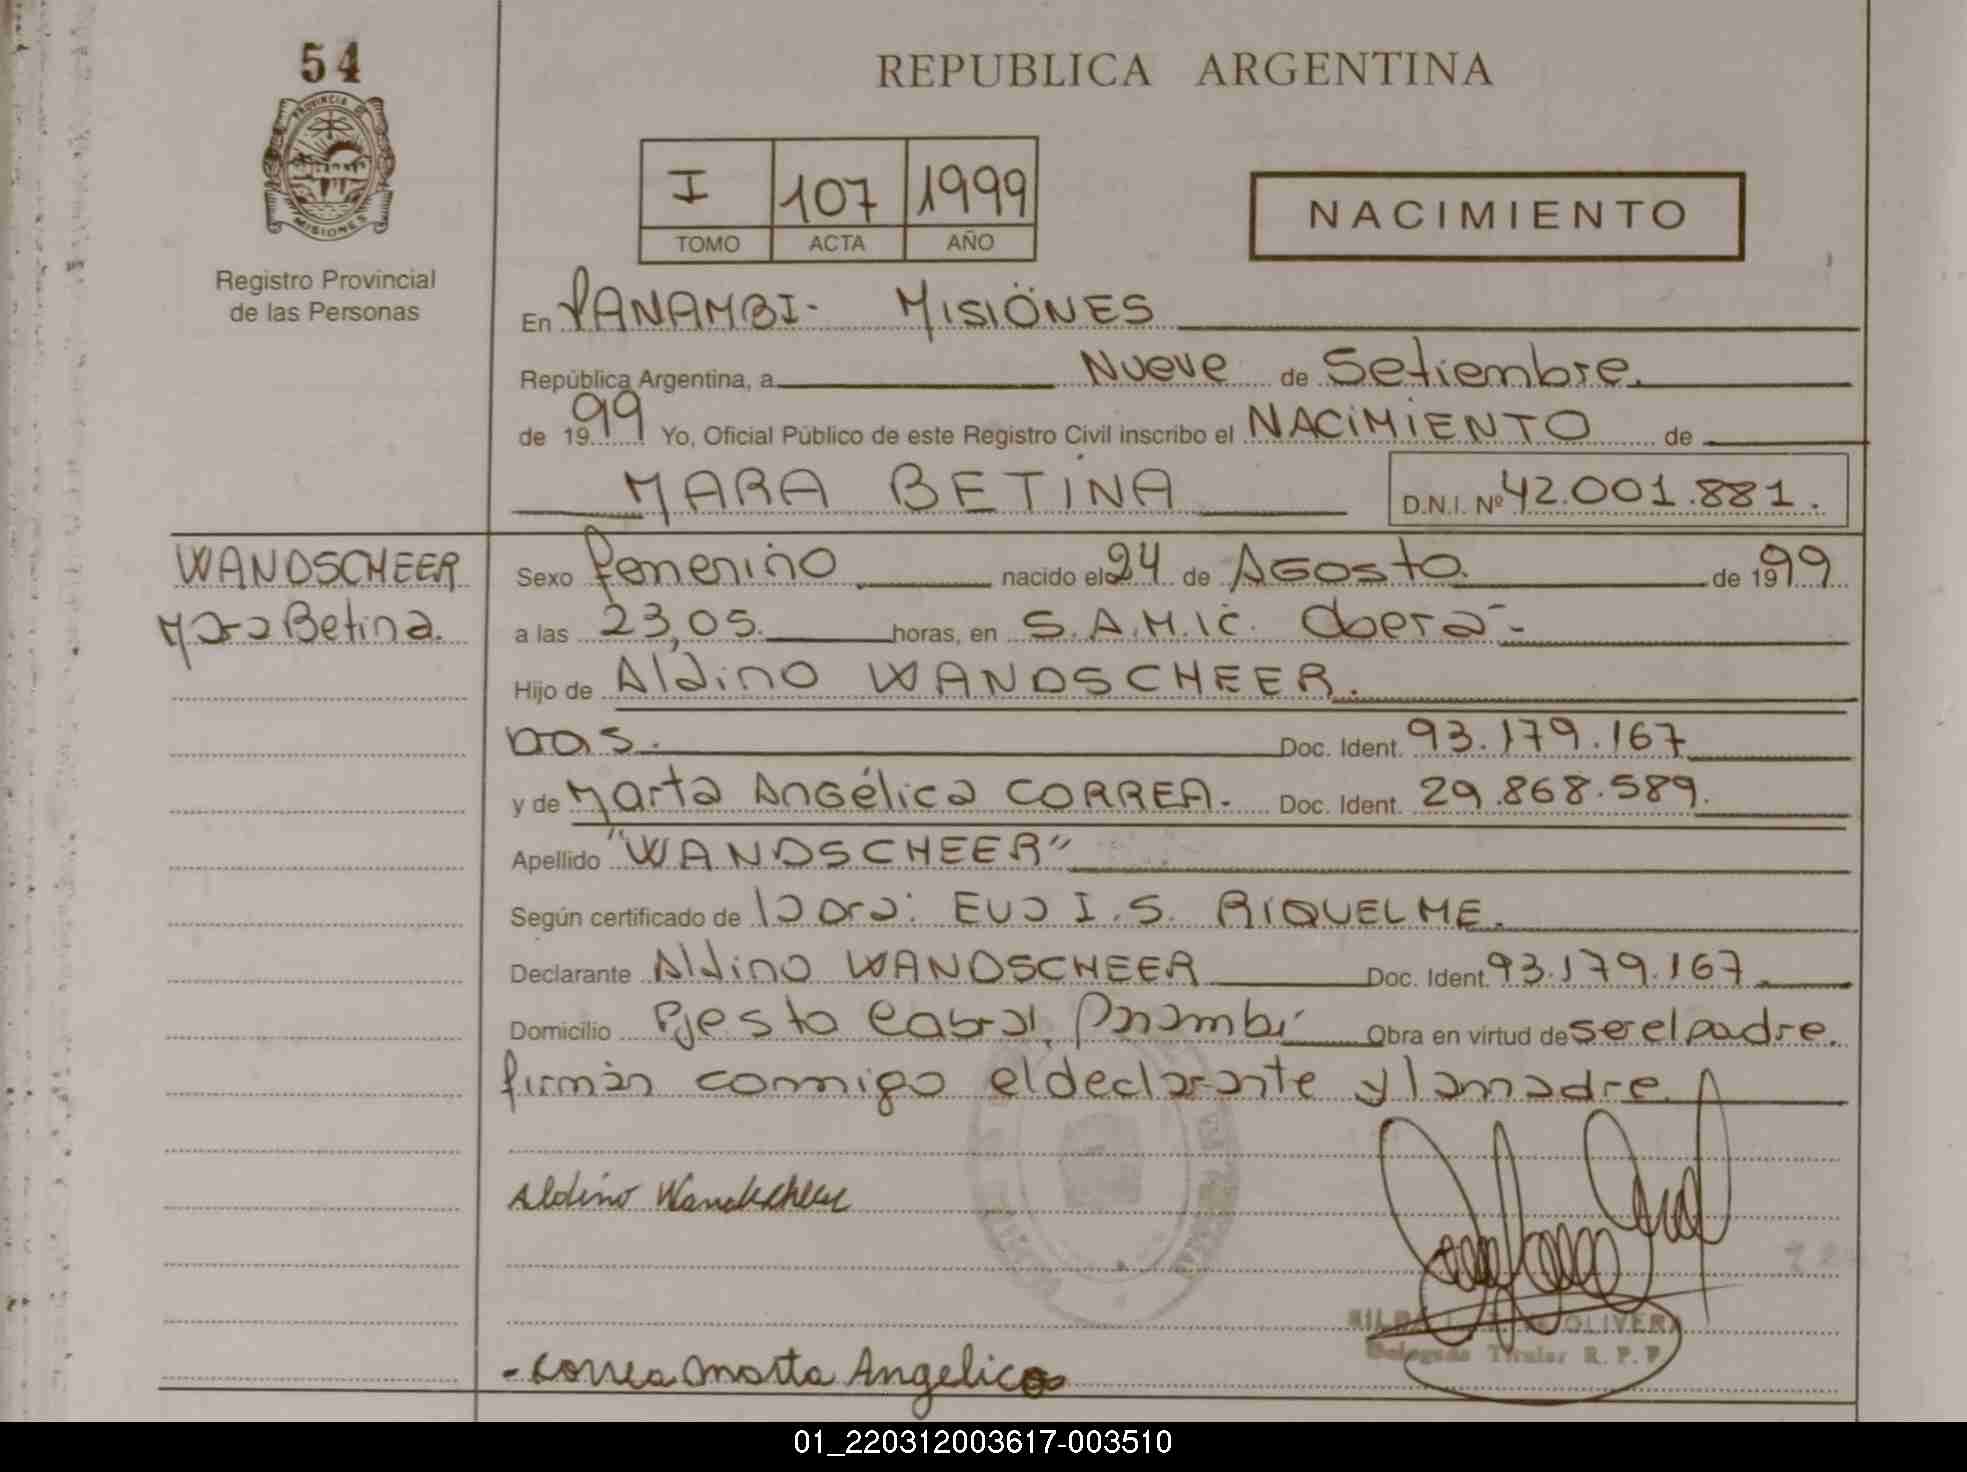 54
PROVINCIA DE
MISIONES
Registro Provincial
de las Personas
REPUBLICA ARGENTINA
I 107 1999
TOMO ACTA AÑO
NACIMIENTO
En PANAMBI- MISIÖNES
República Argentina, a Nueve de Setiembre.
de 1999 Yo, Oficial Público de este Registro Civil inscribo el NACIMIENTO de
MARA BETINA D.N.I. Nº 42.001.881.
WANDSCHEER
Mara Betina.
Sexo femenino nacido el 24 de Agosto. de 1999
a las 23,05. horas, en S.A.M.IC. Oberá-
Hijo de Aldino WANDSCHEER.
Doc. Ident. 93.179.167
y de Marta Angélica CORREA. Doc. Ident. 29.868.589.
Apellido "WANDSCHEER"
Según certificado de la Dra: Eva I.S. RIQUELME.
Declarante Aldino WANDSCHEER Doc. Ident. 93.179.167
Domicilio Pje sto Cabral, Panambí Obra en virtud de ser el padre.
firmán conmigo el declarante y la madre.
Aldino Wandscheer
OLIVERA
Delegada Titular R. P. P
- Correa Marta Angelica
01_220312003617-003510